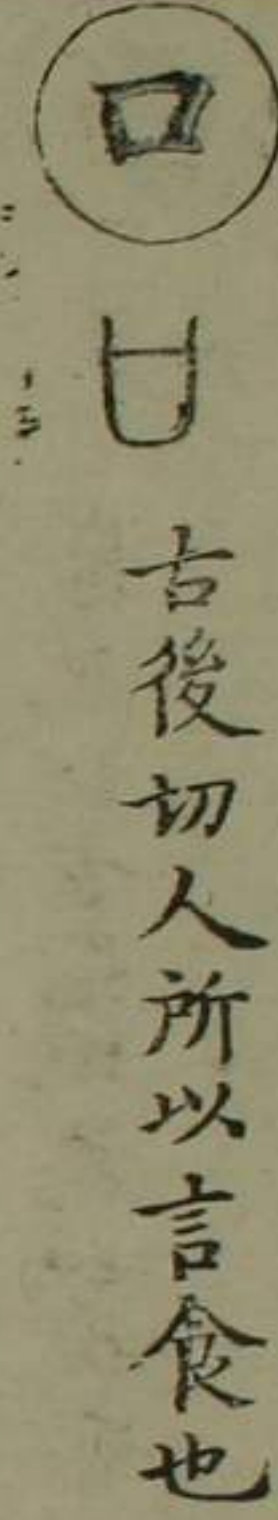 口 口 古後切人所以言食也